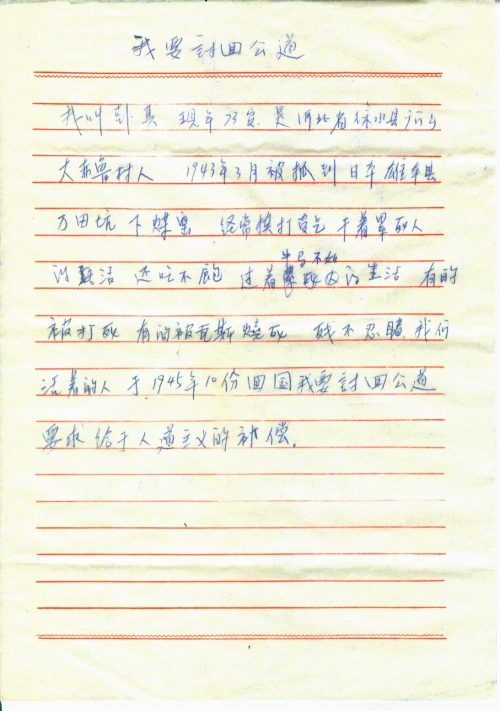 我要討回公道
我叫彭真 現年73岁 是河北省徐水县
大赤鲁村人 1943年3月被抓到日本雄本县
万田坑 下煤窑 经常挨打受气 干着累死人
的活 还吃不飽 过着牛马不如的生活 有的
被打死 有的被瓦斯燒死 残不忍睹 我们
活着的人 于1945年10份回国我要討回公道
要求给于人道主义的补偿。